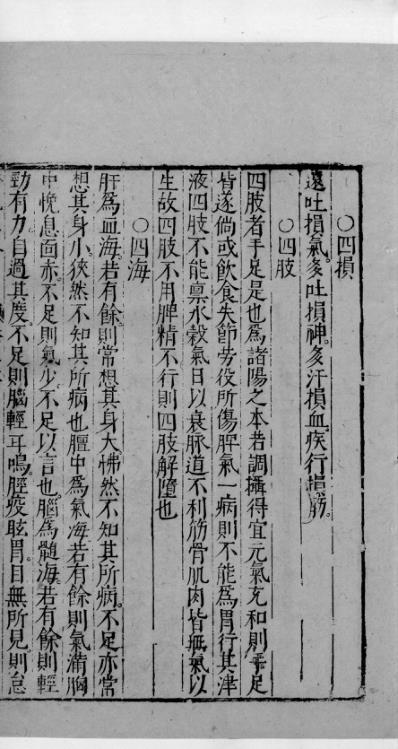 ○四損
遠吐損氣。多吐損神。多汗損血疾行損筋。
○四肢
四肢者手足是也爲諸陽之本若調攝得宜元氣充和則手足
皆遂倘或飲食失節勞役所傷脾氣一病則不能爲胃行其津
液四肢不能禀水穀氣日以衰脉道不利筋骨肌肉皆無氣以
生故四肢不用脾精不行則四肢解墮也
○四海
肝爲血海。若有餘則常想其身大怫然不知其所病。不足亦常
想其身小。狹然不知其所病也膻中爲氣海若有餘則氣滿胸
中悗息面赤。不足則氣少。不足以言也。腦爲髓海。若有餘則輕
勁有力。自過其度。不足則腦輕耳鳴。脛疫眩冒。目無所見。則怠